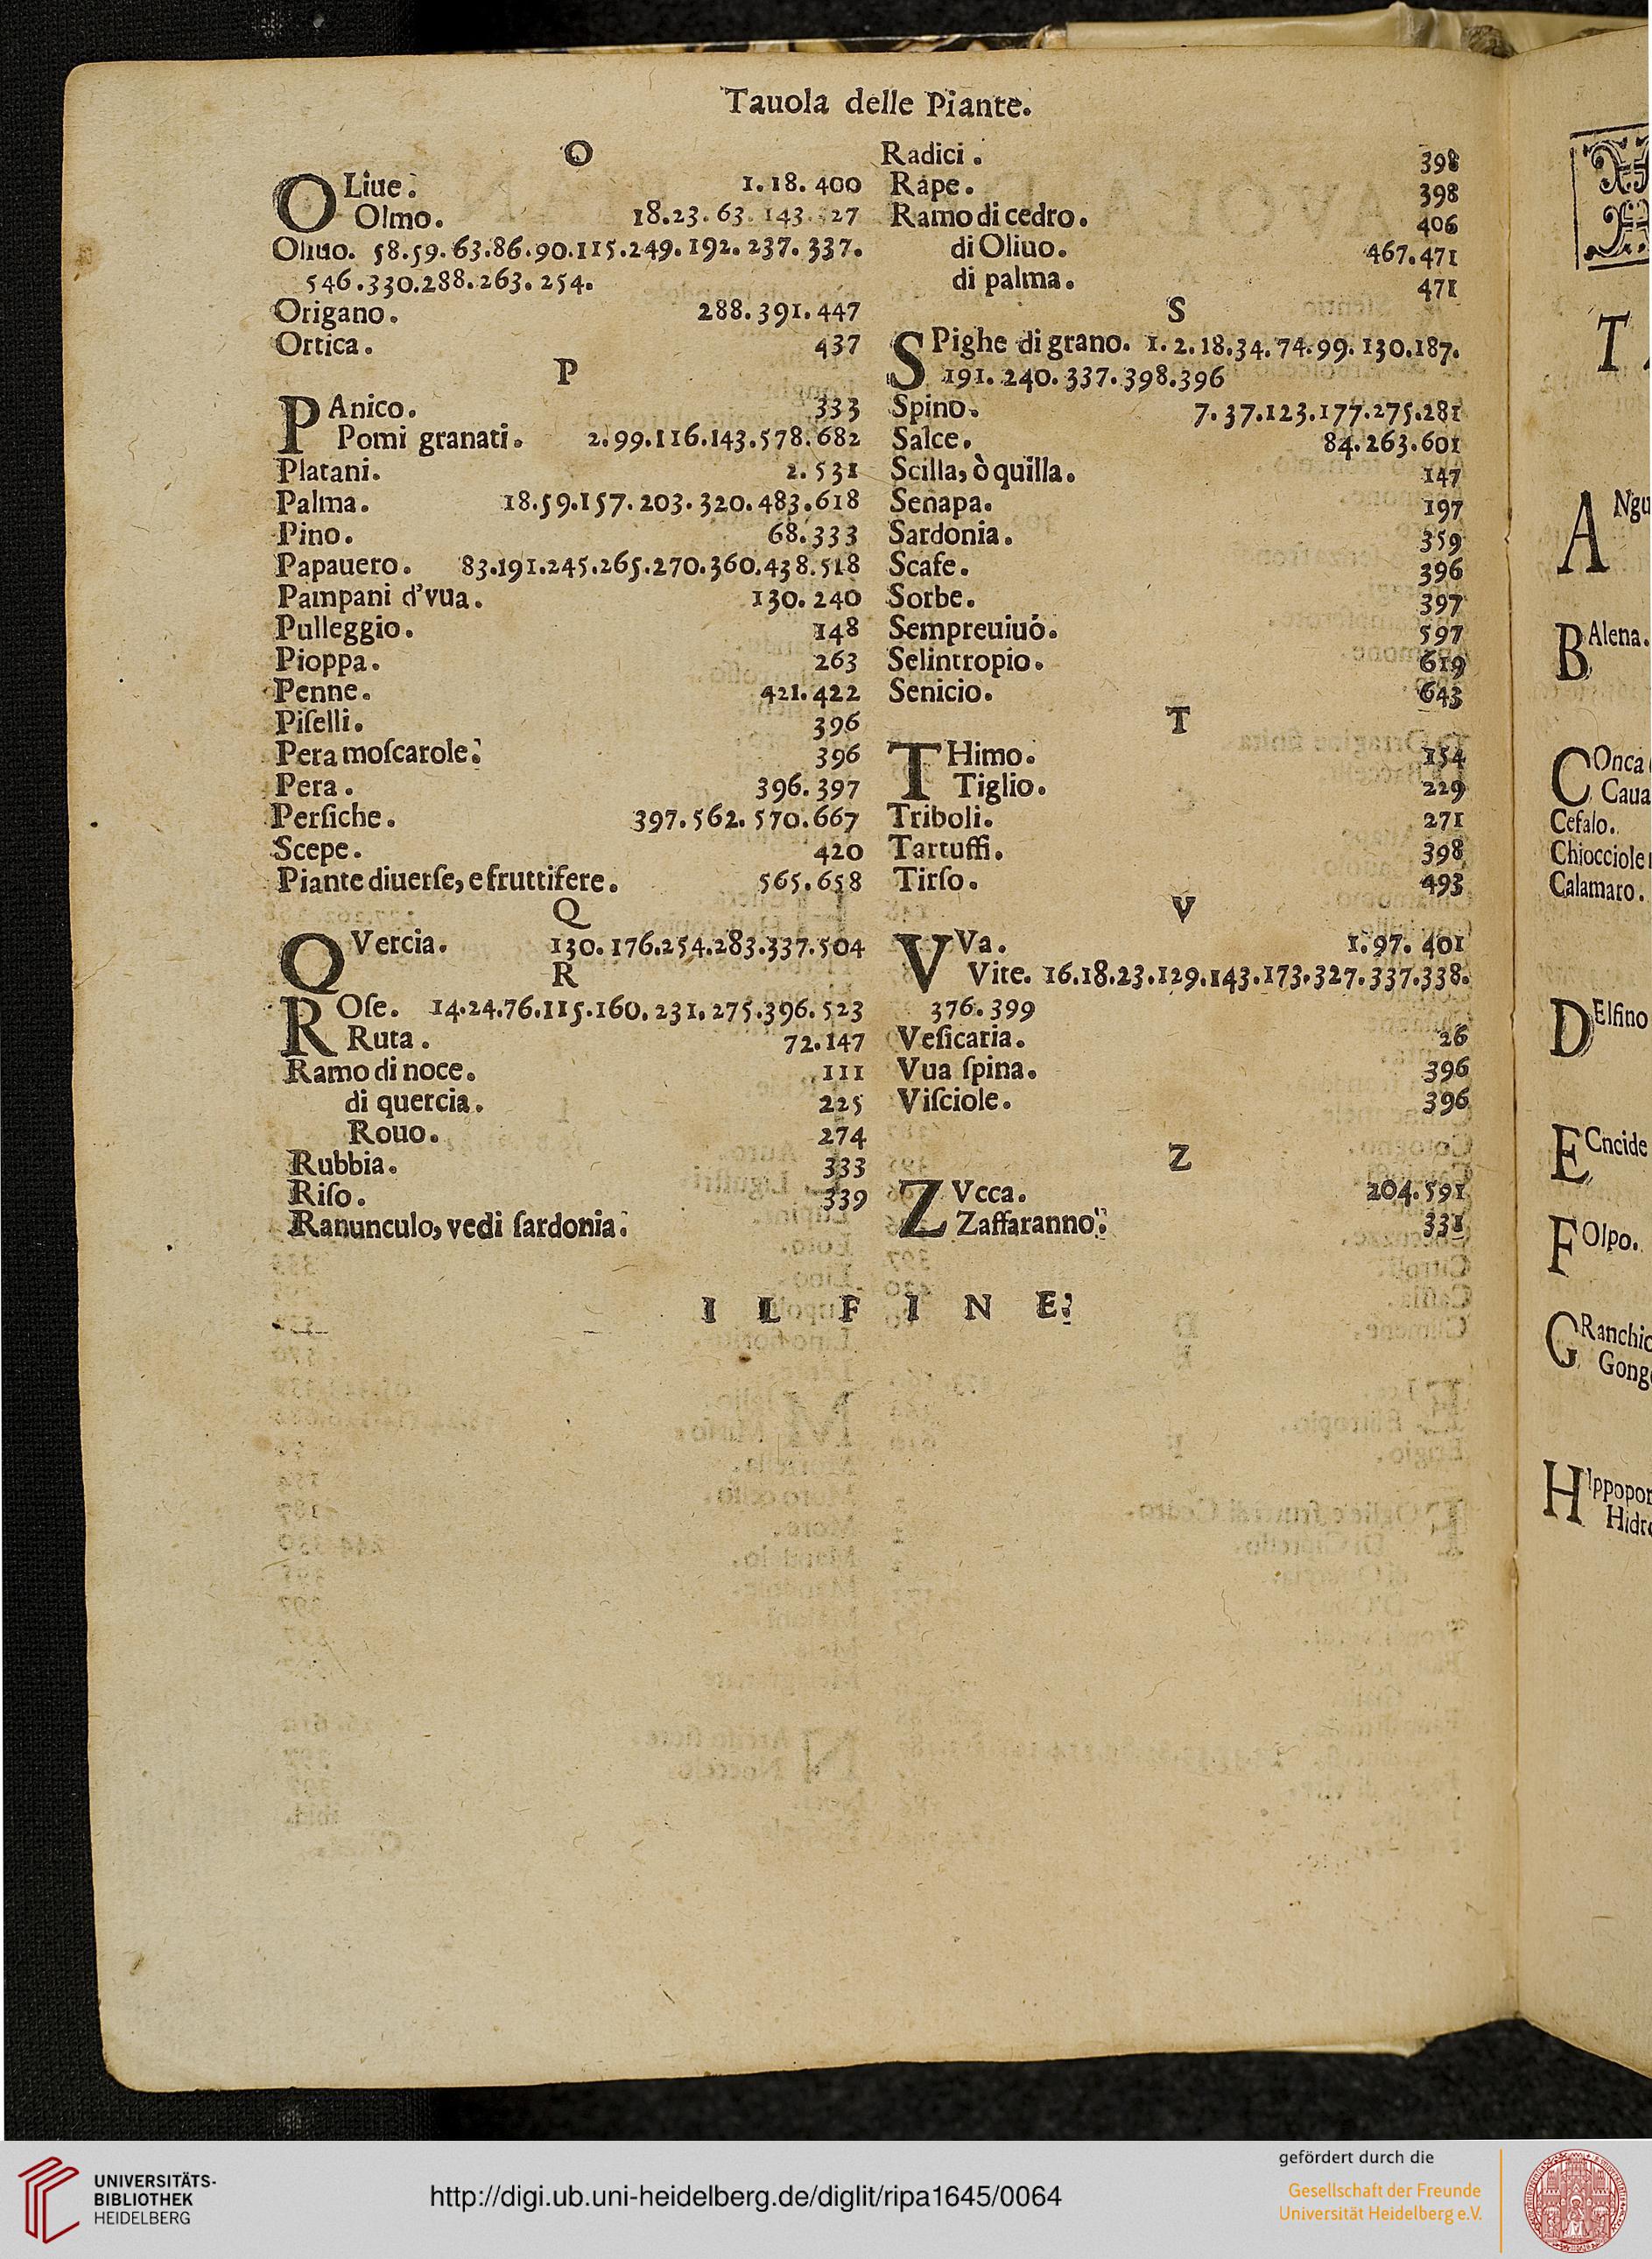 Tauola delle Piante.
O
OLiue. 1.18.400
Olmo. 18.23.63.143.527
Oliuo. 58.59.63.86.90.115.249.192.237.337.
546.330.288.263.254.
Origano. 288.391.447
Ortica. 437
P
PAnico. 333
Pomi granati. 2.99.116.143.578.682
Platani. 2.531
Palma. 18.59.157.203.320.483.618
Pino. 68.333
Papauero. 83.191.245.265.270.360.438.518
Pampani d'vua. 130.240
Pulleggio. 148
Pioppa. 263
Penne. 421.422
Piſelli. 396
Pera moſcarole. 396
Pera. 396.397
Perſiche. 397.562.570.667
Scepe. 420
Piante diuerſe, e fruttifere. 565.658
Q
QVercia. 130.176.254.283.337.504
R
ROſe. 14.24.76.115.160.231.275.396.523
Ruta. 72.147
Ramo di noce. 111
di quercia. 225
Rouo. 274
Rubbia. 333
Riſo. 339
Ranunculo, vedi ſardonia.
Radici. 398
Rape. 398
Ramo di cedro. 406
di Oliuo. 467.471
di palma. 471
S
SPighe di grano. 1.2.18.34.74.99.130.187.
191.240.337.398.396
Spino. 7.37.123.177.275.281
Salce. 84.263.601
Scilla, ò quilla. 147
Senapa. 197
Sardonia. 359
Scafe. 396
Sorbe. 397
Sempreuiuó. 597
Selintropio. 619
Senicio. 643
T
THimo. 154
Tiglio. 229
Triboli. 271
Tartuffi. 398
Tirſo. 493
V
VVa. 1.97.401
Vite. 16.18.23.129.143.173.327.337.338.
376.399
Veſicaria. 26
Vua ſpina. 396
Viſciole. 396
Z
ZVcca. 204.591
Zaffaranno. 331
IL FINE.
T
ANgu
BAlena.
COnca
Caua
Cefalo.
Chiocciole
Calamaro.
DElfino
ECncide
FOlpo.
GRanchio
Gong
HIppopo
Hidr
UNIVERSITÄTS-
BIBLIOTHEK
HEIDELBERG
http://digi.ub.uni-heidelberg.de/diglit/ripa1645/0064
gefördert durch die
Gesellschaft der Freunde
Universität Heidelberg e.V.